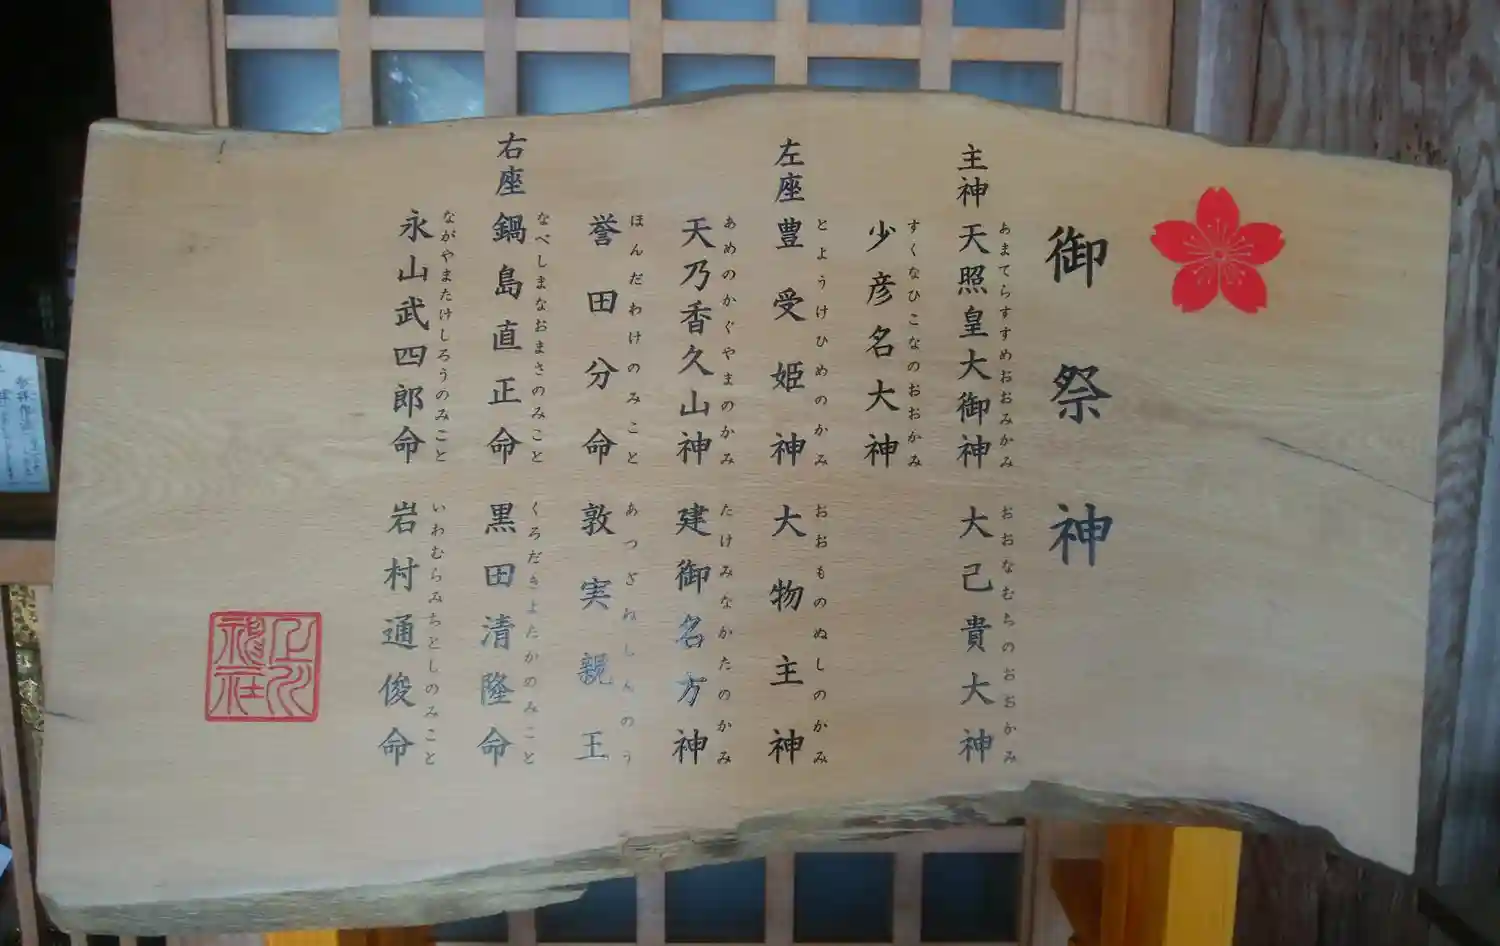 御祭神
主神 天照皇大御神 大己貴大神
あまてらすすめおおみかみ おおなむちのおおかみ
少彦名大神
すくなひこなのおおかみ
左座 豊受姫神 大物主神
とようけひめのかみ おおものぬしのかみ
天乃香久山神 建御名方神
あめのかぐやまのかみ たけみなかたのかみ
誉田分命 敦実親王
ほんだわけのみこと あつざねしんのう
右座 鍋島直正命 黒田清隆命
なべしまなおまさのみこと くろだきよたかのみこと
永山武四郎命 岩村通俊命
ながやまたけしろうのみこと いわむらみちとしのみこと